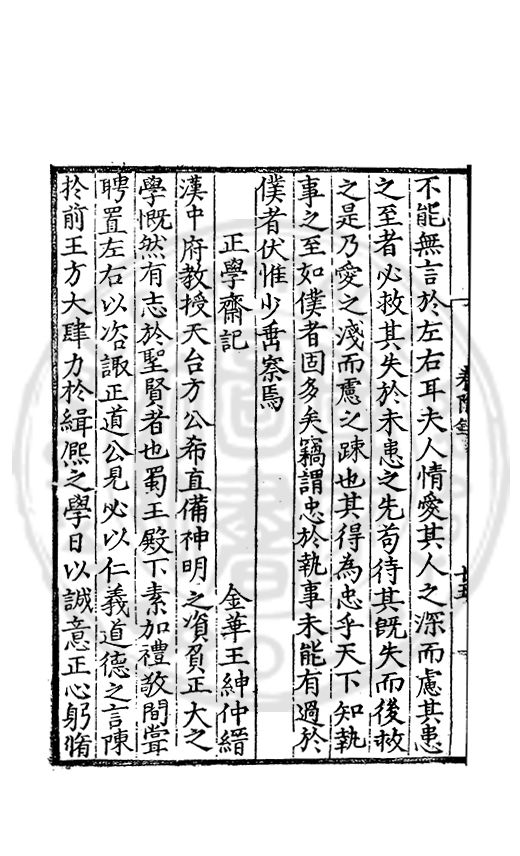 不能無言於左右耳夫人情愛其人之深而慮其患
之至者必救其失於未患之先苟待其既失而後救
之是乃愛之淺而慮之踈也其得為忠乎天下知執
事之至如僕者固多矣竊謂忠於執事未能有過於
僕者伏惟少垂察焉
正學齋記
金華王紳仲縉
漢中府教授天台方公希直備神明之資負正大之
學慨然有志於聖賢者也蜀王殿下素加禮敬間嘗
聘置左右以咨諏正道公見必以仁義道德之言陳
扵前王方大肆力於緝熈之學日以誠意正心躬脩
附錄
廿五